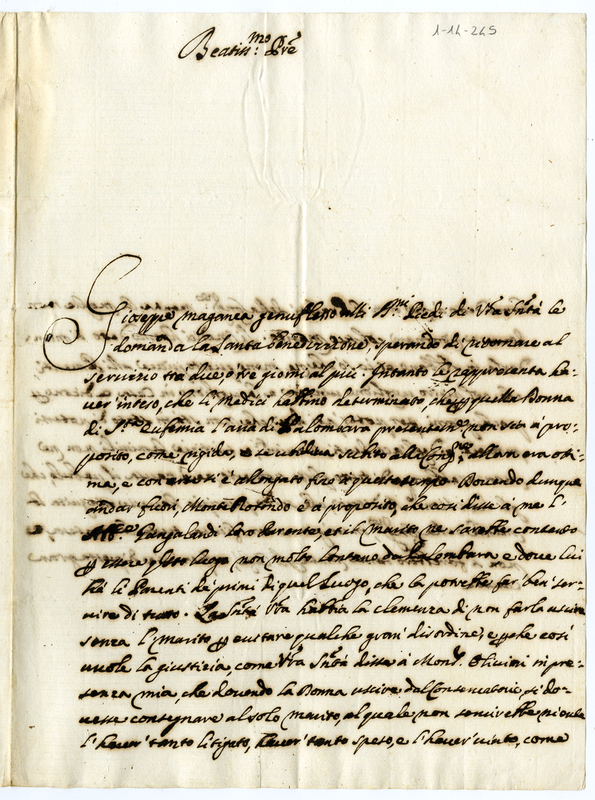 1-14-245
Beatiss:mo Pre
Gioseppe maganza genuflesso alli Bmi Piedi di Vra Sntà le
domanda la Santa benedizzione, sperando di ritornare al
servizio trà due, o trè giorni al più. Intanto le rappresenta ha-
ver inteso, che li Medici habbino determinato, che quella Donna
di Sta Eufemia l'aria di Palombara presentemte non sia à pro-
posito, come rigida, e
andar fuori, Monte Rotondo è à proposito, che così disse à me l'
Gangalandi loro Parente, et il marito ne sarebbe contento
esser luogo non molto lontano da Palombara e dove lui
hà li Parenti de primi di quel Luogo, che la potrebbe far ben ser-
vire di tutto. La Sntà Vra habbia la clemenza di non farla uscire
senza l marito evitare qualche gran disordine, e perche così
vuole la giustizia, come Vra Sntà disse à Monsr. Olivieri in pre-
senza mia, che dovendo la Donna uscire dal Conservatorio, si do-
vesse consegnare al solo marito, al quale non servirebbe
l'haver tanto litigato, haver tanto speso, e l'haver vinto, come